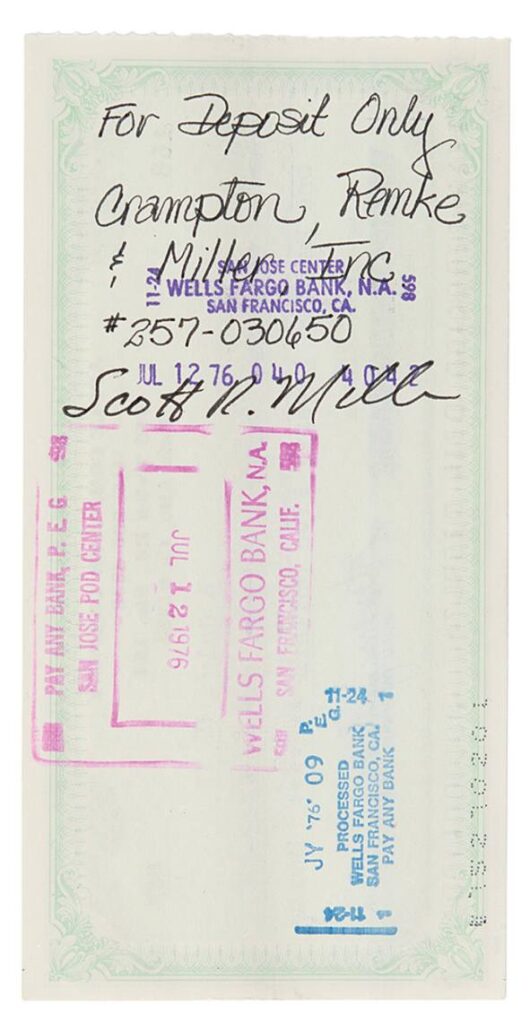 For Deposit Only
Crampton, Remke
& Miller, Inc
SAN JOSE CENTER
11-24 WELLS FARGO BANK, N.A. 598
SAN FRANCISCO, CA.
#257-030650
JUL 12 76 040 4042
Scott R. Miller
PAY ANY BANK, P. E. G
SAN JOSE POD CENTER
JUL 12 1976
WELLS FARGO BANK, N.A.
SAN FRANCISCO, CALIF.
JY '76 09 P. E. G.
11-24 1
PROCESSED
WELLS FARGO BANK
SAN FRANCISCO, CA.
PAY ANY BANK
11-24 1